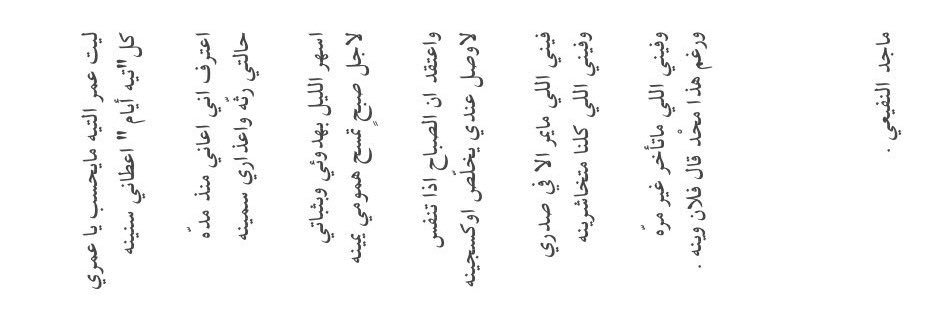 ليت عمر التيه مايحسب يا عمري
كل "تيه أيام" اعطاني سنينه
اعترف اني اعاني منذ مدّه
حالتي رثّه واعذاري سمينه
اسهر الليل بهدوئي وبثباتي
لاجل صبحٍ تمسح همومي يمينه
واعتقد ان الصباح اذا تنفس
لاوصل عندي يخلّص اوكسجينه
فيني اللي مايمر الا في صدري
وفيني اللي كلنا متخاشرينه
وفيني اللي ماتأخر غير مرّه
ورغم هذا محْد قال فلان وينه .
ماجد النفيعي .